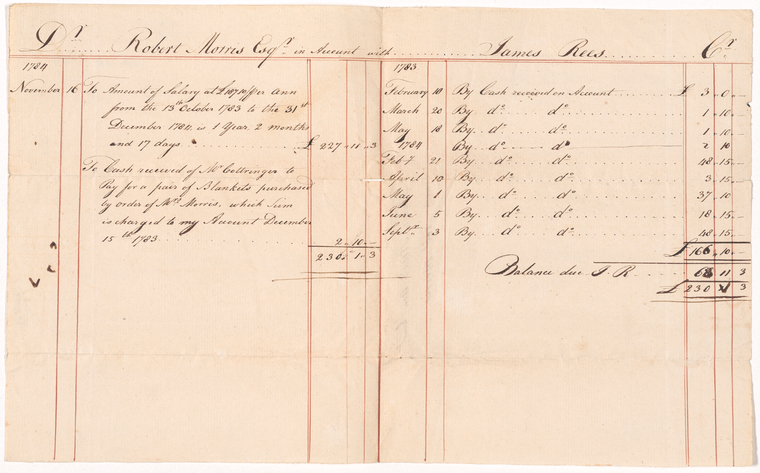 Dr Robert Morris Esqr in Account with James Rees Cr
1784
November 16 To Amount of Salary at £187.10 per Ann
from the 13th October 1783 to the 31st
December 1784 is 1 Year 2 months
and 17 days £ 227 11 3
To Cash received of Mr Cottringer to
Pay for a pair of Blankets purchased
by order of Mrs Morris, which Sum
is charged to my Account December
15th 1783 2 10
230 1 3
1783
February 18 By Cash received on Account £ 3 0
March 20 By do do 1 10
May 18 By do do 1 10
1784 By do do 2 10
Feby 21 By do do 48 15
April 10 By do do 3 15
May 1 By do do 37 10
June 5 By do do 18 15
Septr 3 By do do 48 15
£ 166 10
Balance due J. R 11 3
£ 230 3